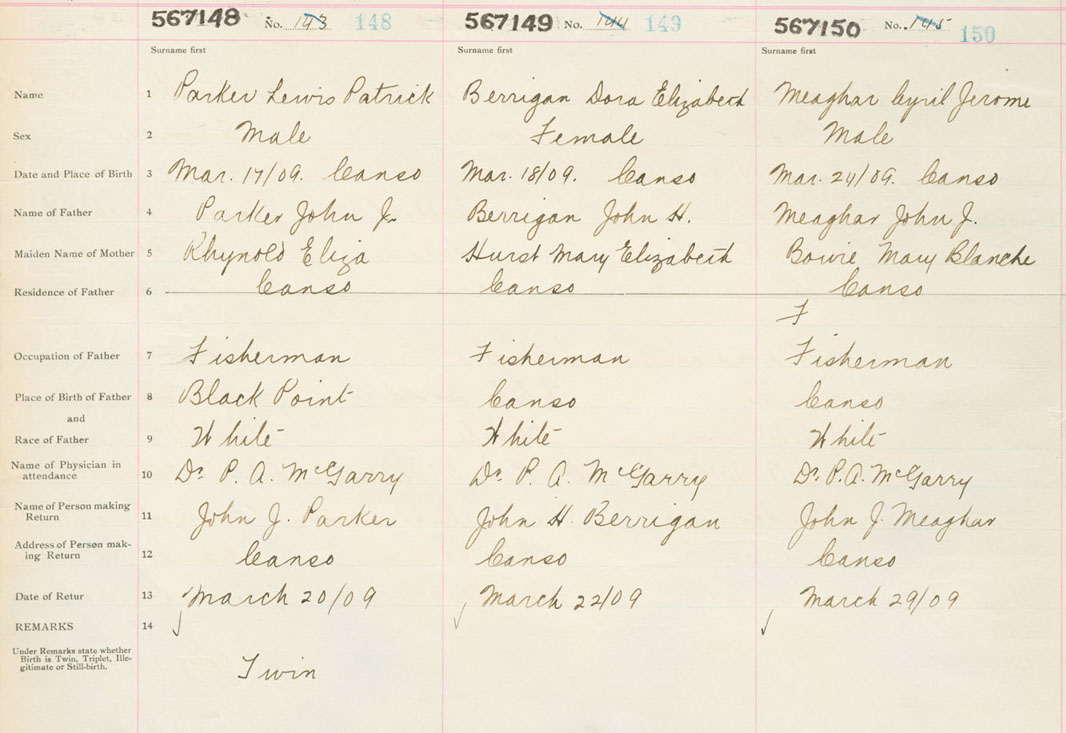 567148 No. 143 148 567149 No. 144 149 567150 No. 145 150
Surname first Surname first Surname first
Name 1 Parker Lewis Patrick Berrigan Dora Elizabeth Meaghar Cyril Jerome
Sex 2 Male Female Male
Date and Place of Birth 3 Mar. 17/09. Canso Mar. 18/09. Canso Mar. 24/09. Canso
Name of Father 4 Parker John J. Berrigan John H. Meaghar John J.
Maiden Name of Mother 5 Rhynold Eliza Hurst Mary Elizabeth Bowie Mary Blanche
Residence of Father 6 Canso Canso Canso
F
Occupation of Father 7 Fisherman Fisherman Fisherman
Place of Birth of Father 8 Black Point Canso Canso
and
Race of Father 9 White White White
Name of Physician in
attendance 10 Dr. P. A. McGarry Dr. P. A. McGarry Dr. P. A. McGarry
Name of Person making
Return 11 John J. Parker John H. Berrigan John J. Meaghar
Address of Person mak-
ing Return 12 Canso Canso Canso
Date of Retur 13 March 20/09 March 22/09 March 29/09
REMARKS 14
Under Remarks state whether
Birth is Twin, Triplet, Ille-
gitimate or Still-birth.
Twin